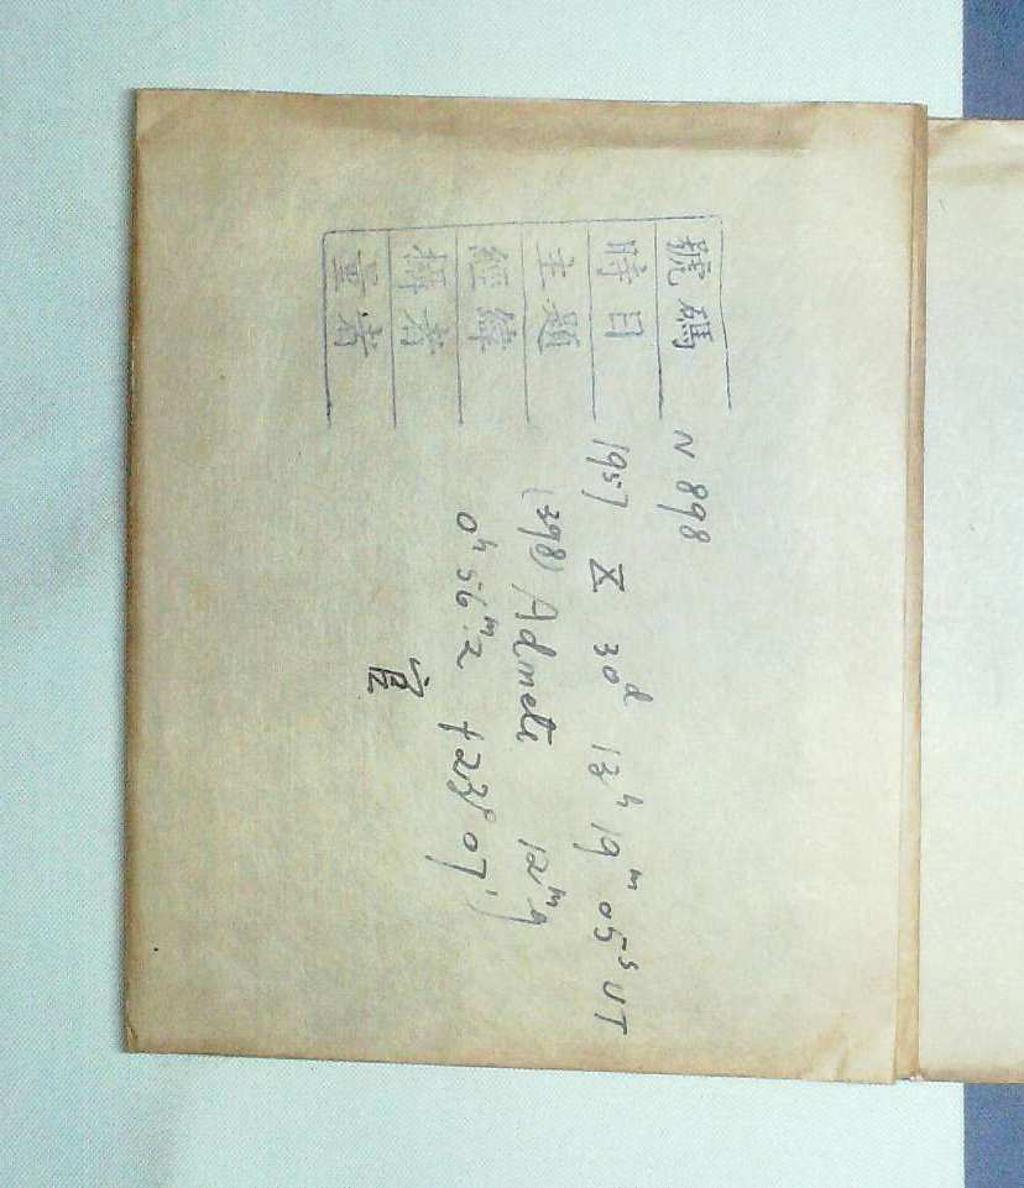 號碼 N 898
時日 1957 X 30ᵈ 13ʰ 19ᵐ 05ˢ UT
主題 (398) Admete 12ᵐ9
經緯 0ʰ 56ᵐ.2 +23° 07'
攝者
量者